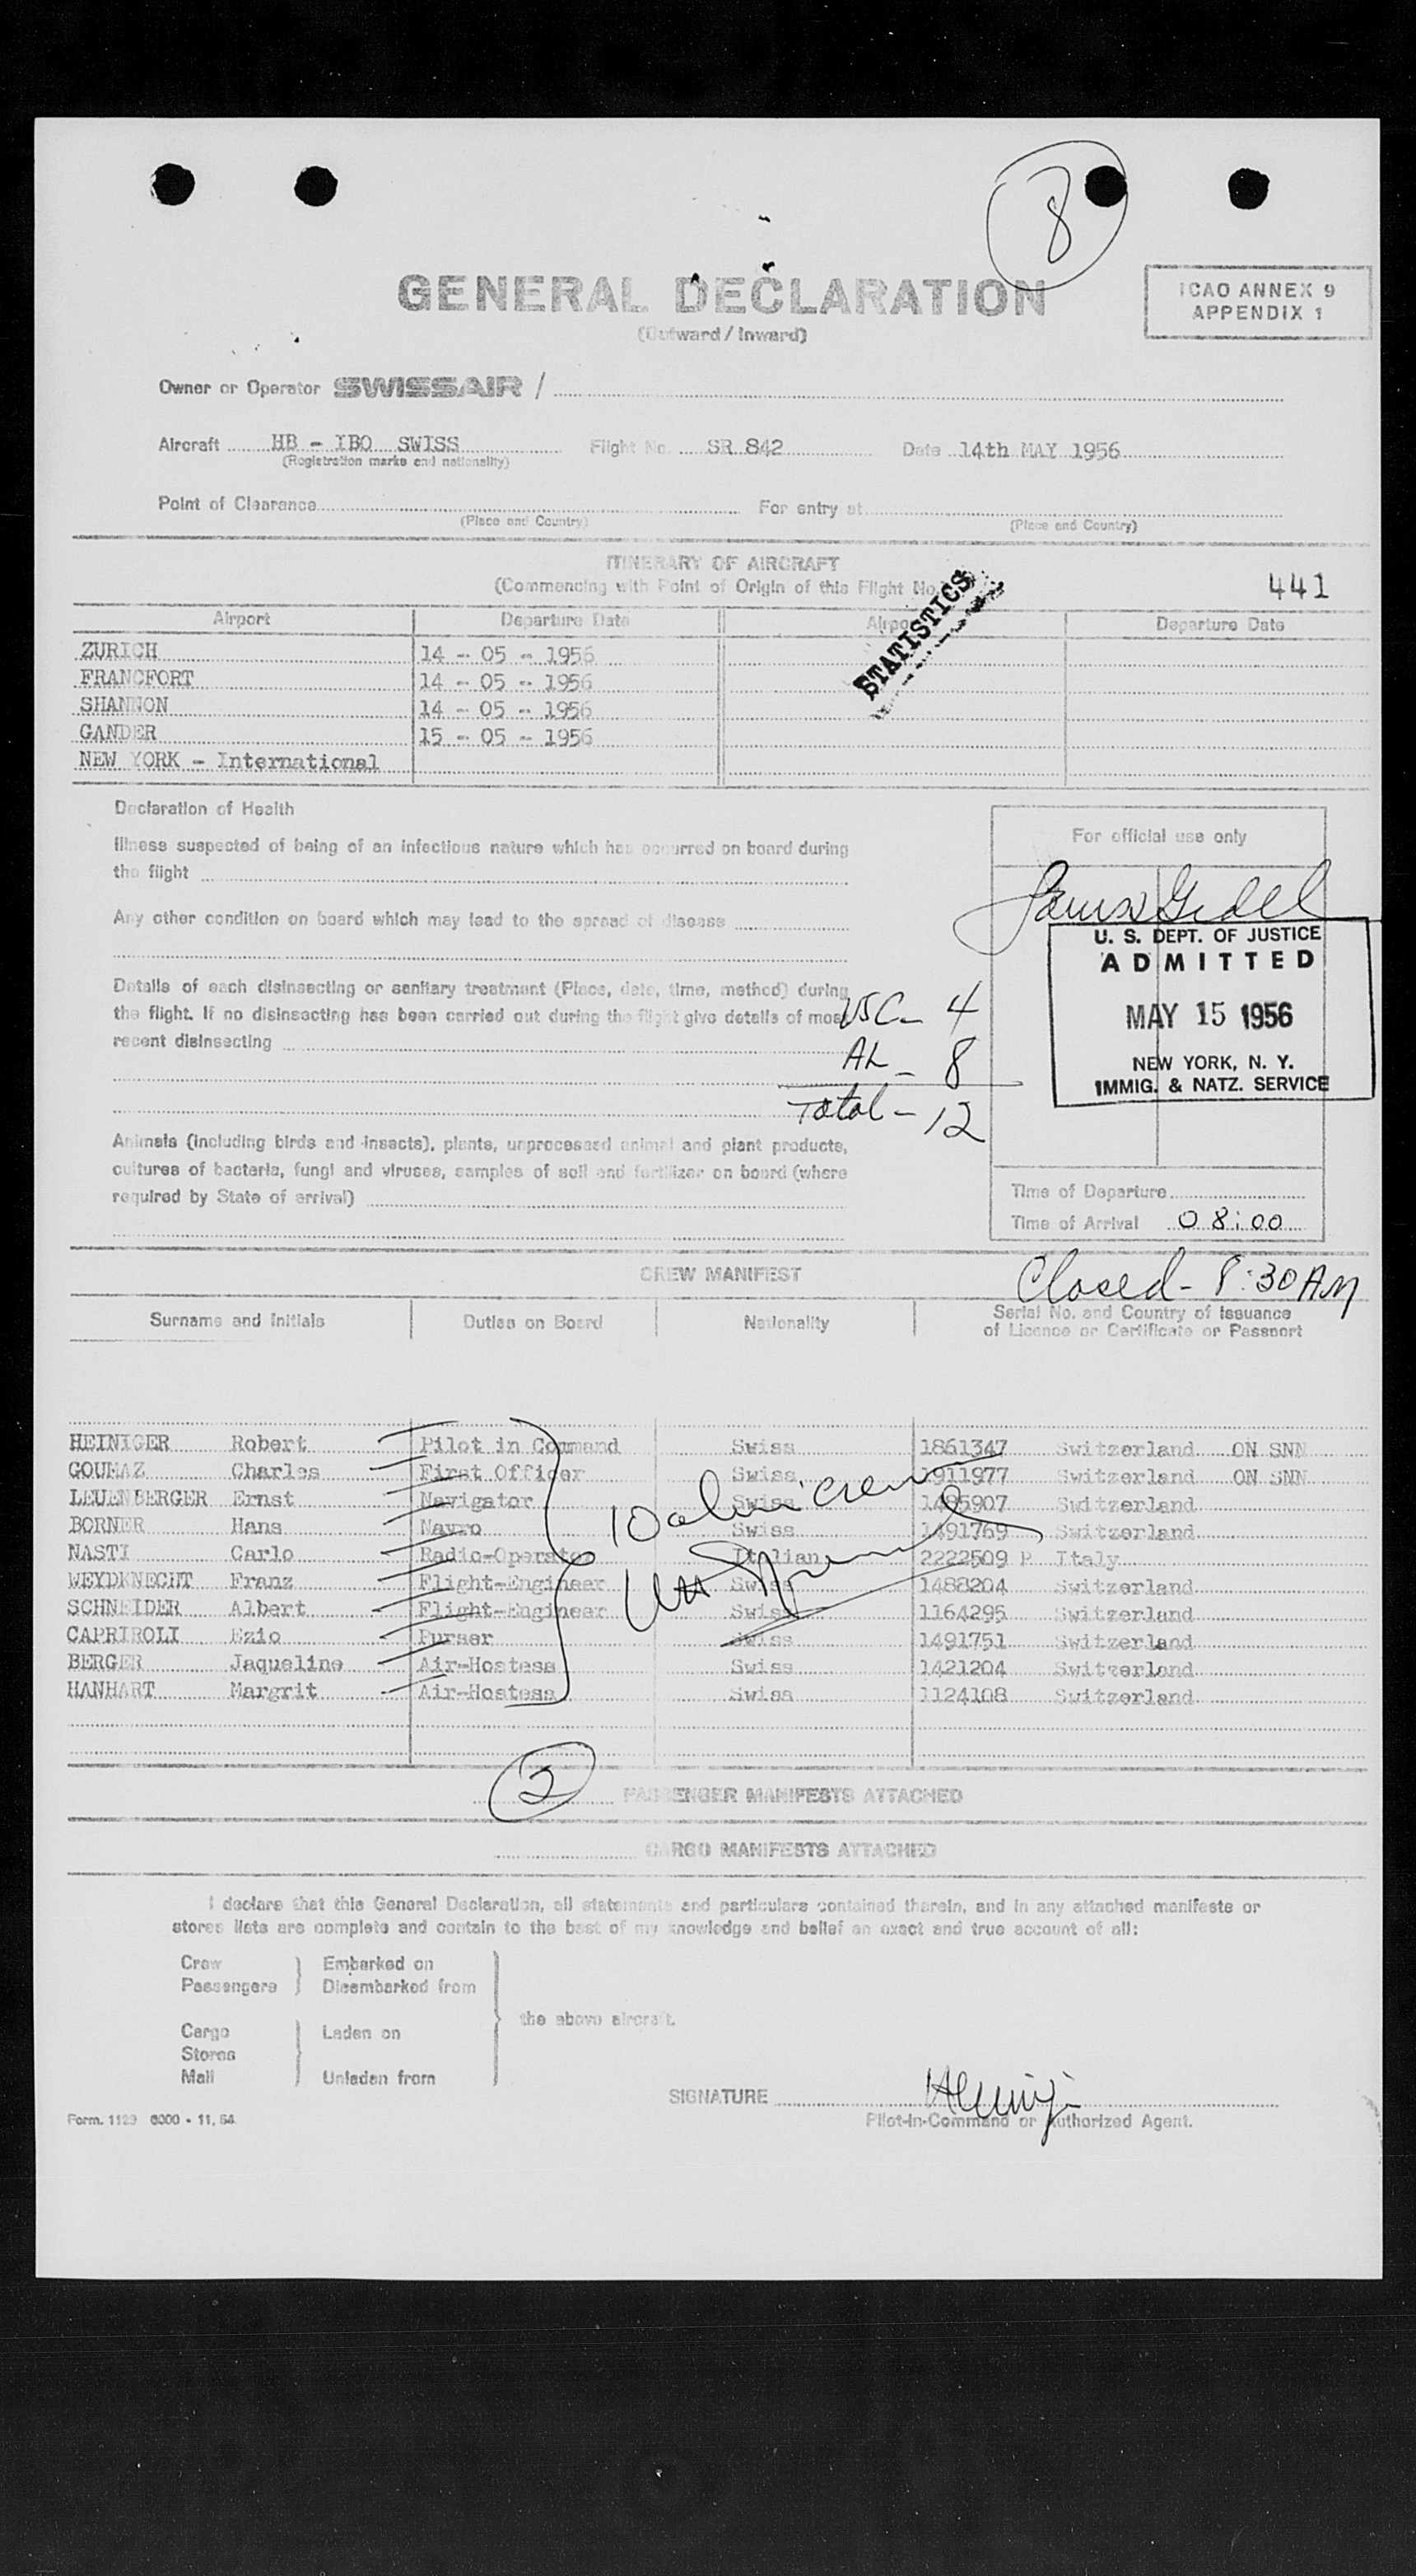 8
GENERAL DECLARATION
(Outward / Inward)
ICAO ANNEX 9
APPENDIX 1
Owner or Operator SWISSAIR /
Aircraft HB - IBO SWISS Flight No. SR 842 Date 14th MAY 1956
(Registration marks and nationality)
Point of Clearance For entry at
(Place and Country) (Place and Country)
ITINERARY OF AIRCRAFT
(Commencing with Point of Origin of this Flight No.
STATISTICS
441
Airport Departure Date Airport Departure Date
ZURICH 14 - 05 - 1956
FRANCFORT 14 - 05 - 1956
SHANNON 14 - 05 - 1956
GANDER 15 - 05 - 1956
NEW YORK - International
Declaration of Health
Illness suspected of being of an infectious nature which has occurred on board during
the flight
Any other condition on board which may lead to the spread of disease
Details of each disinsecting or sanitary treatment (Place, date, time, method) during
the flight. If no disinsecting has been carried out during the flight give details of most
recent disinsecting
USC - 4
AL - 8
Total - 12
Animals (including birds and insects), plants, unprocessed animal and plant products,
cultures of bacteria, fungi and viruses, samples of soil and fertilizer on board (where
required by State of arrival)
For official use only
U. S. DEPT. OF JUSTICE
ADMITTED
MAY 15 1956
NEW YORK, N. Y.
IMMIG. & NATZ. SERVICE
Time of Departure
Time of Arrival 08:00
Closed - 8:30 AM
CREW MANIFEST
Surname and Initials Duties on Board Nationality Serial No. and Country of Issuance
of Licence or Certificate or Passport
HEINIGER Robert Pilot in Command Swiss 1861347 Switzerland ON SNN
GOUMAZ Charles First Officer Swiss 1911977 Switzerland ON SNN
LEUENBERGER Ernst Navigator Swiss 1485907 Switzerland
BORNER Hans Navro Swiss 1491769 Switzerland
NASTI Carlo Radio-Operator Italian 2222509 P Italy
WEYDKNECHT Franz Flight-Engineer Swiss 1488204 Switzerland
SCHNEIDER Albert Flight-Engineer Swiss 1164295 Switzerland
CAPRIROLI Ezio Purser Swiss 1491751 Switzerland
BERGER Jaqueline Air-Hostess Swiss 1421204 Switzerland
HANHART Margrit Air-Hostess Swiss 1124108 Switzerland
10 alien crew
2 PASSENGER MANIFESTS ATTACHED
CARGO MANIFESTS ATTACHED
I declare that this General Declaration, all statements and particulars contained therein, and in any attached manifests or
stores lists are complete and contain to the best of my knowledge and belief an exact and true account of all:
Crew Embarked on
Passengers Disembarked from
the above aircraft.
Cargo Laden on
Stores
Mail Unladen from
SIGNATURE
Pilot-in-Command or Authorized Agent.
Form. 1129 6000 - 11. 54